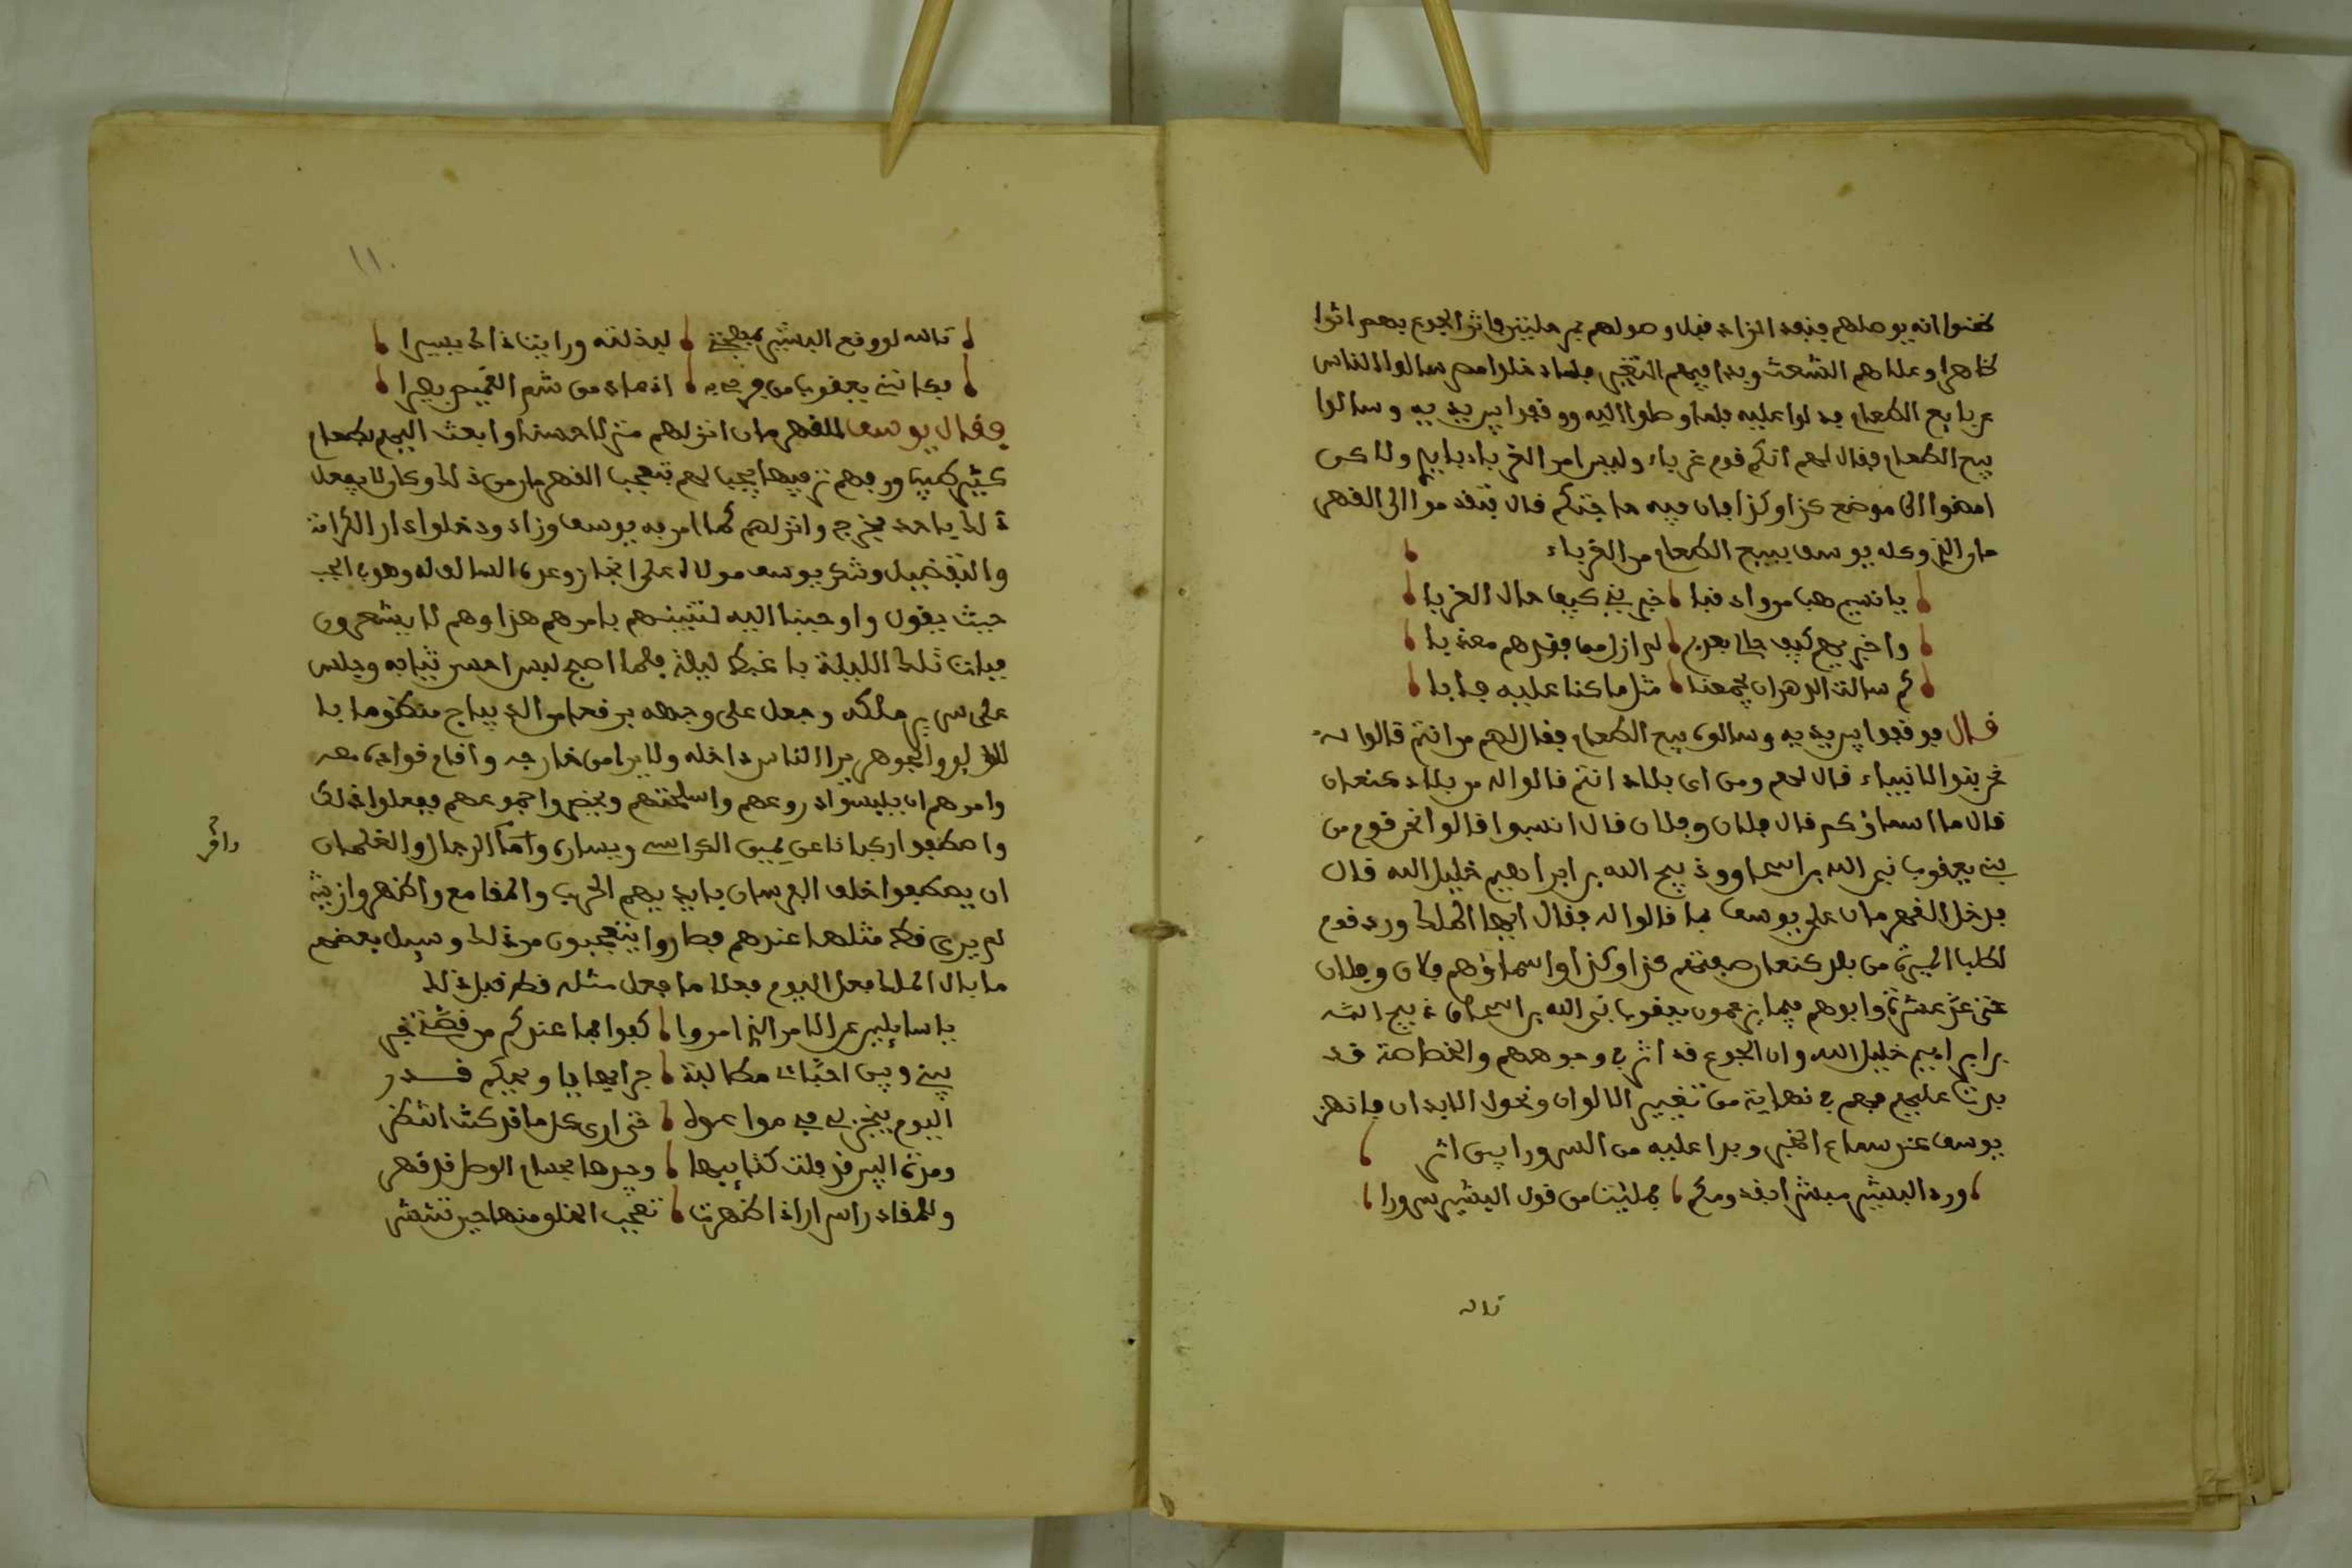 ظنوا انه يوصلهم فنفد الزاد قبل وصولهم بمرحلتين فاثر الجوع بهم اثرا
ظاهرا وعلاهم الشعث وبدا فيهم التغير فلما دخلوا مصر سالوا الناس
عن بايع الطعام فدلوا عليه فلما وصلوا اليه ووقفوا بين يديه وسالوا
بيع الطعام فقال لهم انكم قوم غرباء وليس امر الغرباء بايدينا ولاكن
امضوا الى موضع كذا وكذا فان فيه حاجتكم قال فتقدموا الى القهر
مان الذي وكله يوسف يبيع الطعام من الغرباء
يا نسيم هب من وادي قبا خبريني كيف حال الغربا
واخبريهم كيف حالي بعدهم لم ازل من فقدهم معذبا
كم سالت الدهر ان يجمعنا مثل ما كنا عليه فابا
قال فوقفوا بين يديه وسالوه بيع الطعام فقال لهم من انتم قالوا له
نحن بنو الانبياء قال لهم ومن اي بلاد انتم قالوا له من بلاد كنعان
قال ما اسماؤكم قال فلان وفلان قال انسبوا قالوا نحن قوم من
بني يعقوب نبي الله بن اسحاق ذبيح الله بن ابراهيم خليل الله قال
فدخل القهرمان على يوسف بما قالوا له فقال ايها الملك ورد قوم
لطلب الميرة من بلد كنعان صفتهم كذا وكذا واسماؤهم فلان وفلان
حتى عد عشرة وابوهم فيما يزعمون يعقوب نبي الله بن اسحاق ذبيح الله
بن ابراهيم خليل الله وان الجوع قد اثر في وجوههم والخصاصة قد
بدت عليهم فهم في نهاية من تغيير الالوان ونحول الابدان فانهز
يوسف عند سماع الخبر وبدا عليه من السرور ابين اثر
ورد البشير مبشرا بقدومكم فمليت من قول البشير سرورا
تالله
١١٠
تالله لو وقع البشير بمهجتي لبذلته ورايت ذاك يسيرا
فكانني يعقوب من فرحي به اذ عاد من شم القميص بصيرا
فقال يوسف للقهرمان انزلهم منزلا حسنا وابعث اليهم بطعام
كثير طيب ورفههم ترفيها يجب لهم فتعجب القهرمان من ذلك وكان لا يفعل
ذلك باحد فخرج وانزلهم كما امر به يوسف وزاد ودخلوا دار الكرامة
والتفضيل وشكر يوسف مولاه على انجاز وعده السالف له وهو في الجب
حيث يقول واوحينا اليه لتنبئنهم بامرهم هذا وهم لا يشعرون
فبات تلك الليلة باغبط ليلة فلما اصبح لبس احسن ثيابه وجلس
على سرير ملكه وجعل على وجهه برقعا من الديباج منظوما با
للؤلؤ والجوهر يرا الناس داخله ولا يرا من خارجه واقام قواده معه
وامرهم ان يلبسوا دروعهم واسلحتهم ويحضروا جموعهم ففعلوا ذلك
واصطفوا ركبانا عن يمين الكراسي ويساره وامر الرجال والغلمان
وامر
ان يصطفوا خلف الفرسان بايديهم الحرب والمقامع واظهروا زينة
لم يرى قط مثلها عندهم فصاروا يتعجبون من ذلك وسيل بعضهم
ما بال الملك فعل اليوم فعلا ما فعل مثله قط قبل ذلك
يا سايلين عن الامر الذي امروا كفوا فما عندكم من قصتي خبر
بيني وبين احبائي مطالبة جرا بها يا ويحكم قدر
اليوم ينجز لي في موا عمولا حتى ارى كل ما قد كنت انتظر
وللفؤاد اسرار اذا ظهرت تعجب الخلق منها حين تنتشر